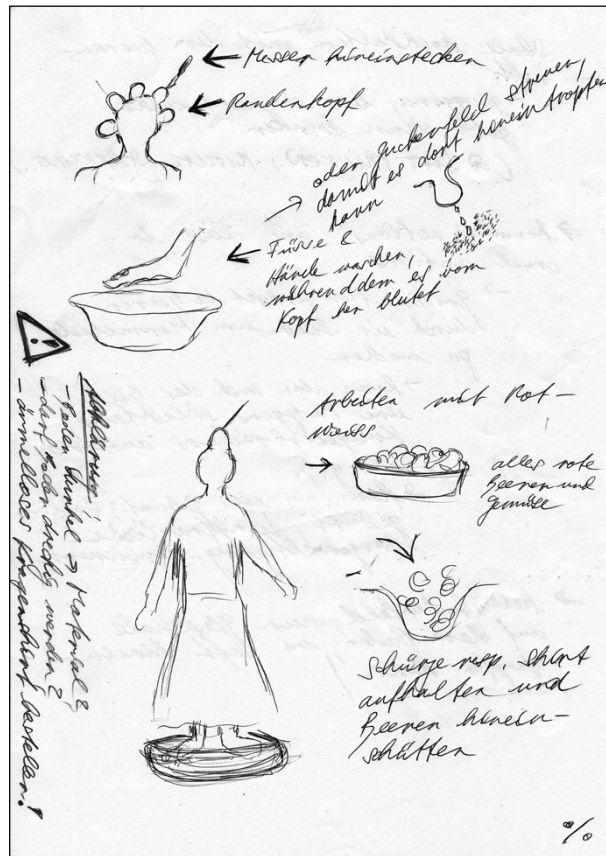 Messer hineinstecken
Randenkopf
oder Zuckerfeld streuen,
damit es dort hineintropfen
kann
Füsse &
Hände waschen,
währenddem es vom
Kopf her blutet
Arbeiten mit Rot-
weiss
alles rote
Beeren und
Gemüse
Schürze resp. Shirt
aufhalten und
Beeren hinein-
schütten
Abklären:
- Boden dunkel → Material?
- darf Boden dreckig werden?
- ärmelloses Kragenshirt bestellen!